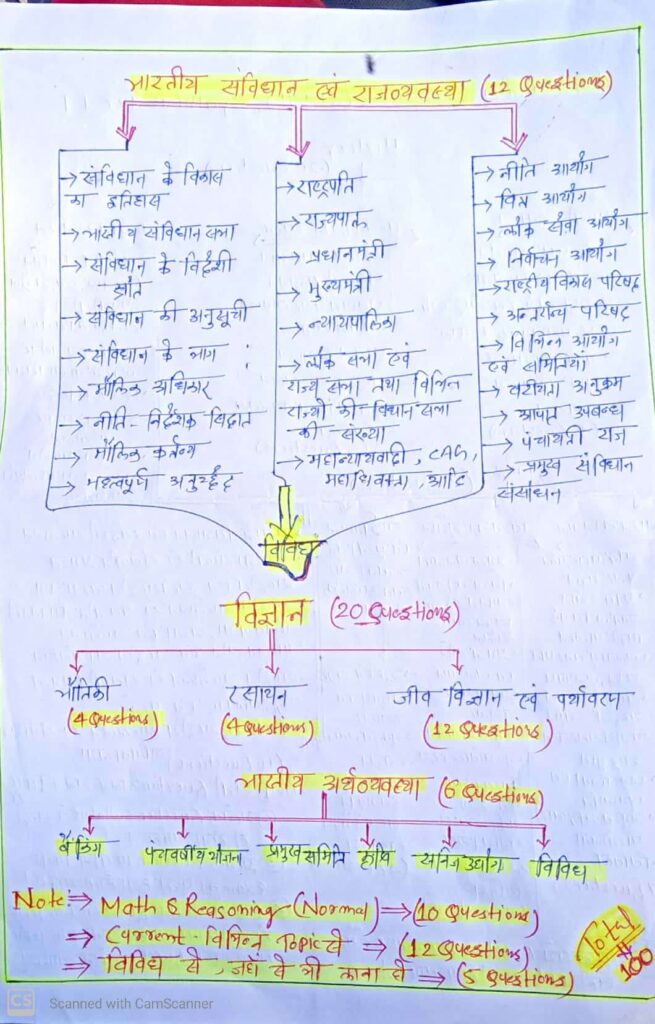 भारतीय संविधान एवं राजव्यवस्था (12 Questions)
→ संविधान के विकास
का इतिहास
→ भारतीय संविधान सभा
→ संविधान के विदेशी
स्रोत
→ संविधान की अनुसूची
→ संविधान के भाग
→ मौलिक अधिकार
→ नीति-निर्देशक सिद्धांत
→ मौलिक कर्तव्य
→ महत्वपूर्ण अनुच्छेद
→ राष्ट्रपति
→ राज्यपाल
→ प्रधानमंत्री
→ मुख्यमंत्री
→ न्यायपालिका
→ लोक सभा एवं
राज्य सभा तथा विभिन्न
राज्यों की विधान सभा
की संख्या
→ महान्यायवादी, CAG,
महाधिवक्ता, आदि
→ नीति आयोग
→ वित्त आयोग
→ लोक सेवा आयोग
→ निर्वाचन आयोग
→ राष्ट्रीय विकास परिषद
→ अन्तर्राज्य परिषद
→ विभिन्न आयोग
एवं समितियाँ
→ वरीयता अनुक्रम
→ आपात उपबन्ध
→ पंचायती राज
→ प्रमुख संविधान
संसोधन
विविध
विज्ञान (20 Questions)
भौतिकी रसायन जीव विज्ञान एवं पर्यावरण
(4 Questions) (4 Questions) (12 Questions)
भारतीय अर्थव्यवस्था (6 Questions)
बैंकिंग पंचवर्षीय योजना प्रमुख समिति कृषि खनिज उद्योग विविध
Note ⇒ Math & Reasoning-(Normal) ⇒ (10 Questions)
⇒ Current-विभिन्न Topic से ⇒ (12 Questions)
⇒ विविध से, जहाँ से भी आना से ⇒ (5 Questions)
Total
# 100
CS Scanned with CamScanner